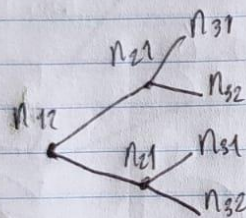 n31
n21
n32
n12
n21
n31
n32